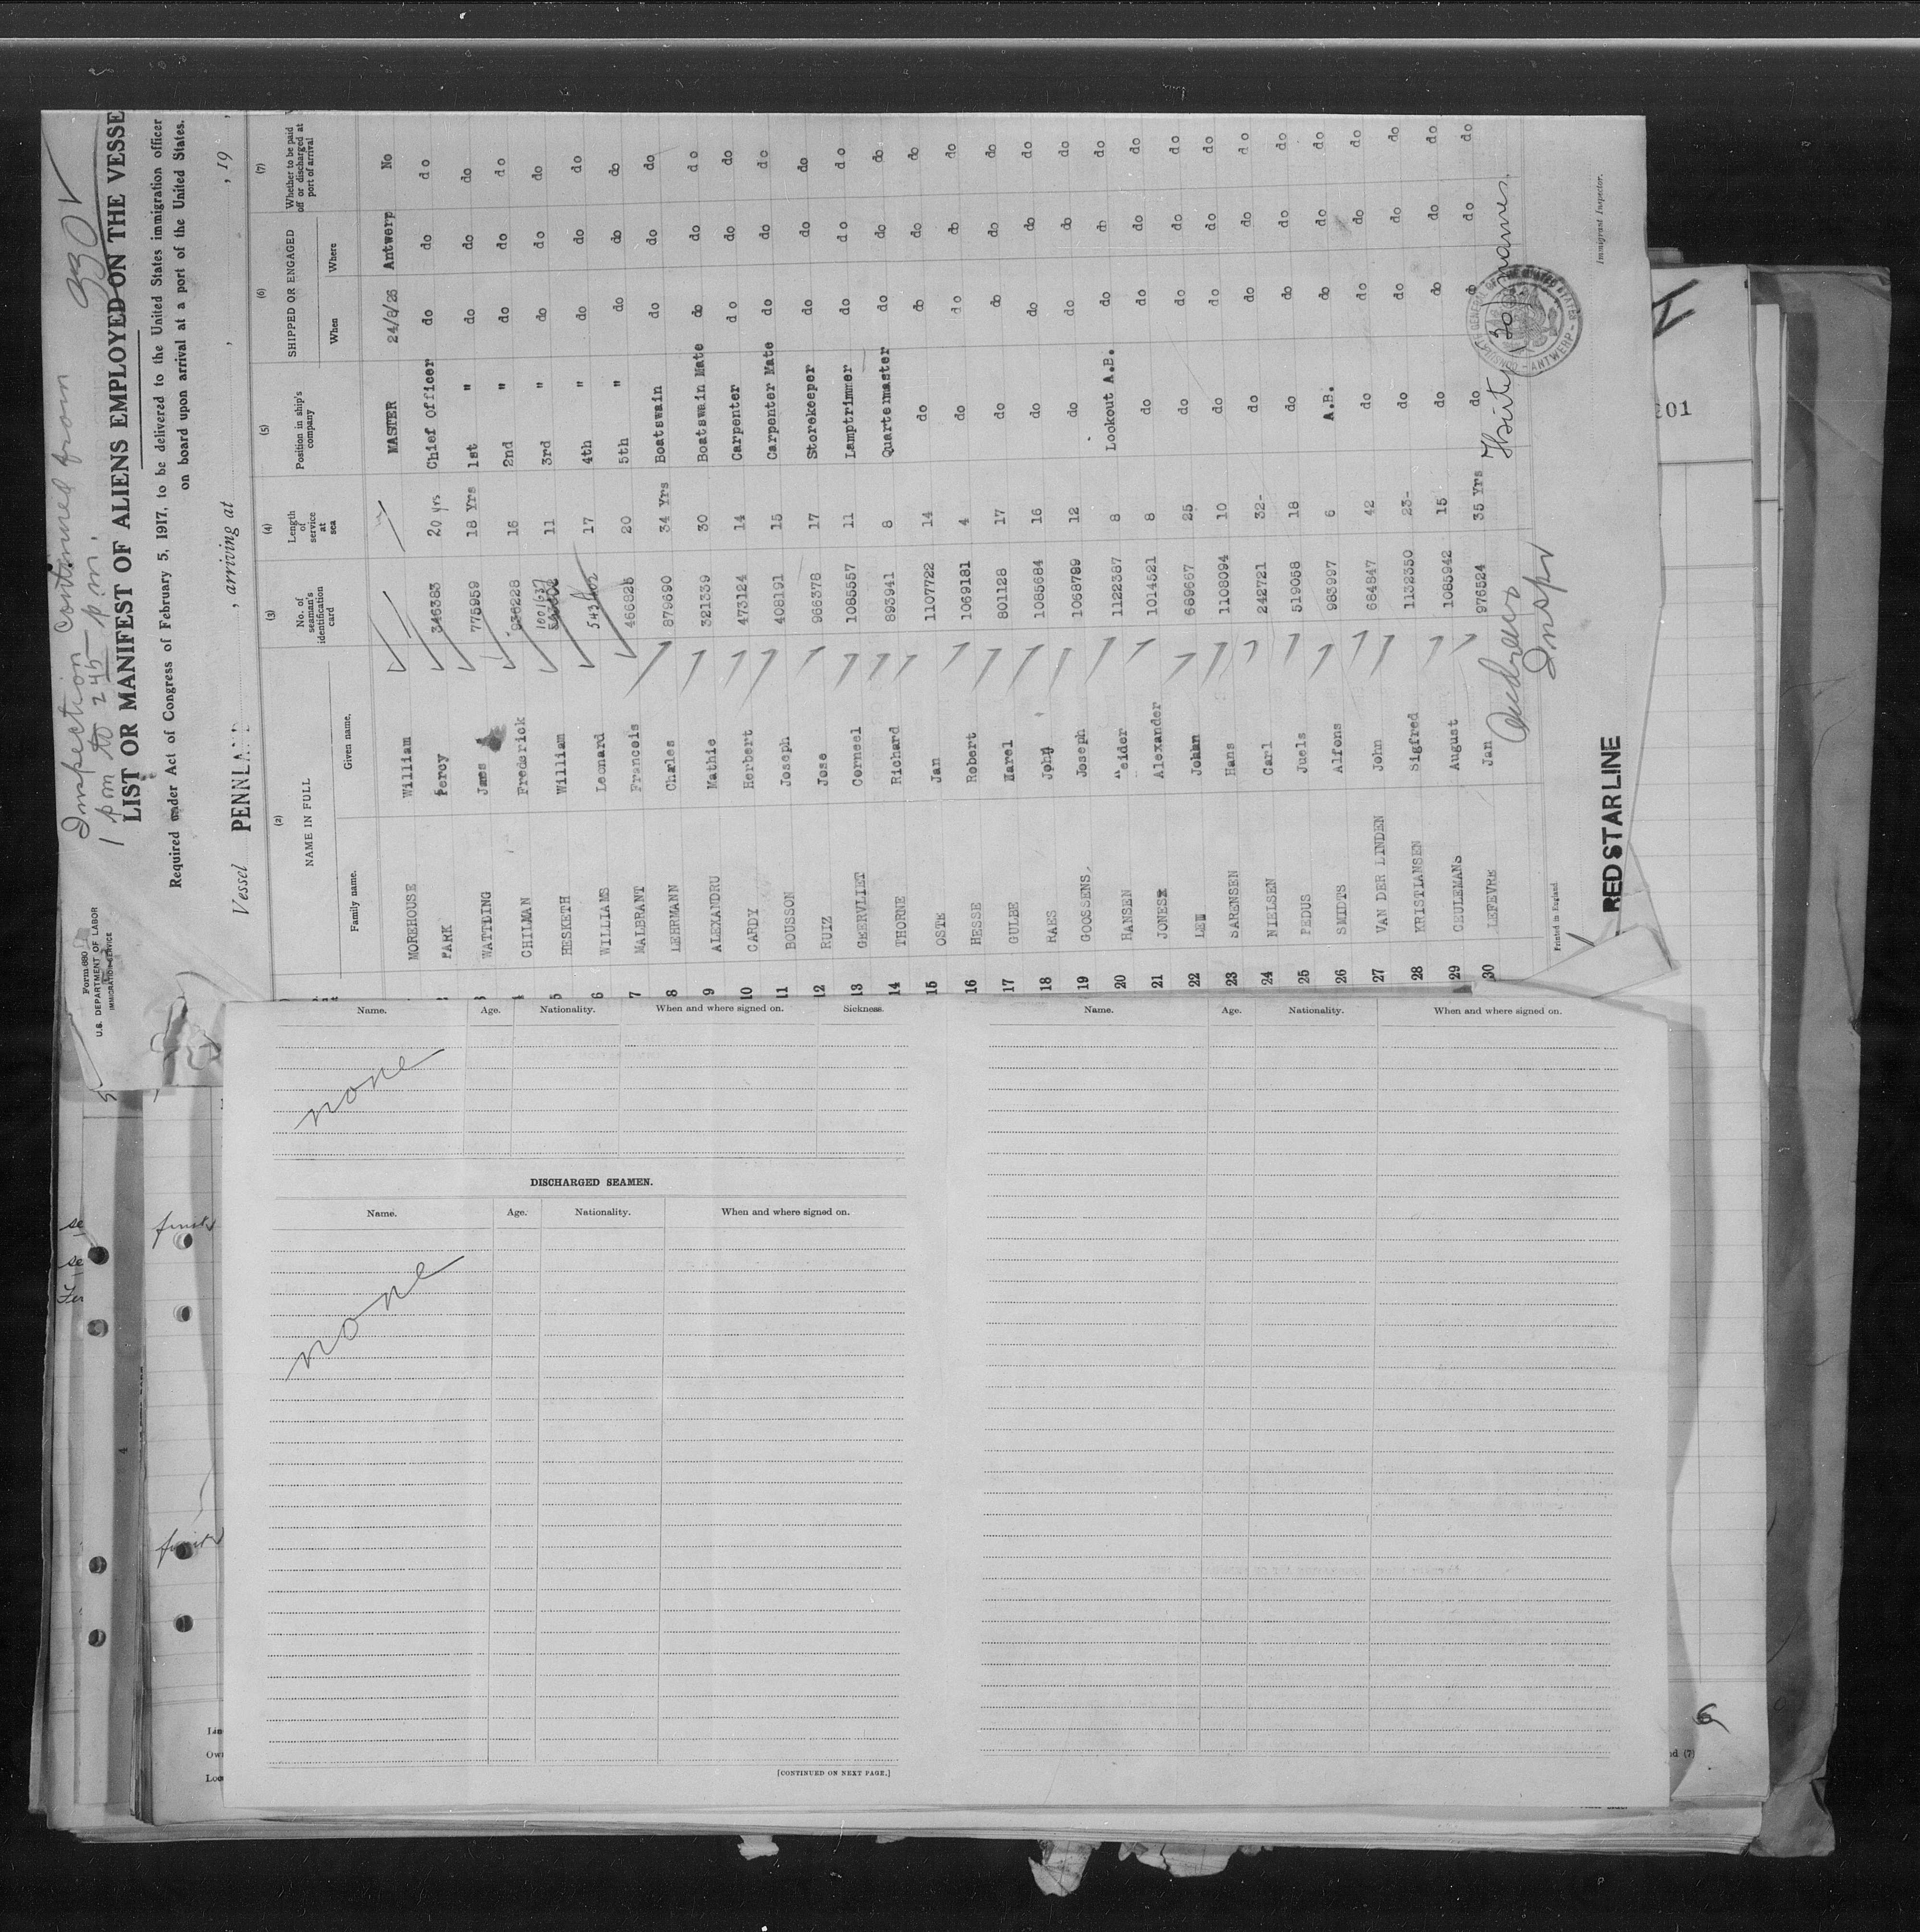 Inspection continued from 930
1 pm to 245 pm.
Form 680
U.S. DEPARTMENT OF LABOR
IMMIGRATION SERVICE
LIST OR MANIFEST OF ALIENS EMPLOYED ON THE VESSE
Required under Act of Congress of February 5, 1917, to be delivered to the United States immigration officer
on board upon arrival at a port of the United States.
Vessel PENNLAND , arriving at , , 19 ,
(2) (3) (4) (5) (6) (7)
NAME IN FULL No. of seaman's identification card Length of service at sea Position in ship's company SHIPPED OR ENGAGED Whether to be paid off or discharged at port of arrival
Family name. Given name. When Where
MOREHOUSE William MASTER 24/8/26 Antwerp No
PARK Percy 346383 20 yrs Chief Officer do do do
WATTDING James 775959 18 Yrs 1st " do do do
CHILMAN Frederick 936228 16 2nd " do do do
5 HESKETH William 101637 11 3rd " do do do
6 WILLIAMS Leonard 543602 17 4th " do do do
7 MALBRANT Francois 466825 20 5th " do do do
8 LEHRMANN Chrles 879690 34 Yrs Boatswain do do do
9 ALEXANDRU Mathie 321339 30 Boatswain Mate do do do
10 CARDY Herbert 473124 14 Carpenter do do do
11 BOUSSON Joseph 408191 15 Carpenter Mate do do do
12 RUIZ Jose 966378 17 Storekeeper do do do
13 GEERVLIET Corneel 1085557 11 Lamptrimmer do do do
14 THORNE Richard 893941 8 Quartermaster do do do
15 OSTE Jan 1107722 14 do do do do
16 HESSE Robert 1069181 4 do do do do
17 GULBE Karel 801128 17 do do do do
18 RAES John 1085684 16 do do do do
19 GOOSSENS. Joseph 1068789 12 do do do do
20 HANSEN eider 1122387 8 Lookout A.B. do do do
21 JONES Alexander 1014521 8 do do do do
22 LEM Johan 689667 25 do do do do
23 SARENSEN Hans 1108094 10 do do do do
24 NIELSEN Carl 242721 32- do do do do
25 PEDUS Juels 519058 18 do do do do
26 SMIDTS Alfons 983997 6 A.B. do do do
27 VAN DER LINDEN John 684847 42 do do do do
28 KRISTIANSEN Sigfred 1132350 23- do do do do
29 CEULEMANS August 1085942 15 do do do do
30 LEFEVRE Jan 976524 35 Yrs do do do do
Andrews
Inspr
Thirty (30) names.
CONSULATE GENERAL OF THE UNITED STATES - ANTWERP -
Immigrant Inspector.
Printed in England
RED STAR LINE
01
Name. Age. Nationality. When and where signed on. Sickness.
none
DISCHARGED SEAMEN.
Name. Age. Nationality. When and where signed on.
none
[CONTINUED ON NEXT PAGE.]
Name. Age. Nationality. When and where signed on.
4
6